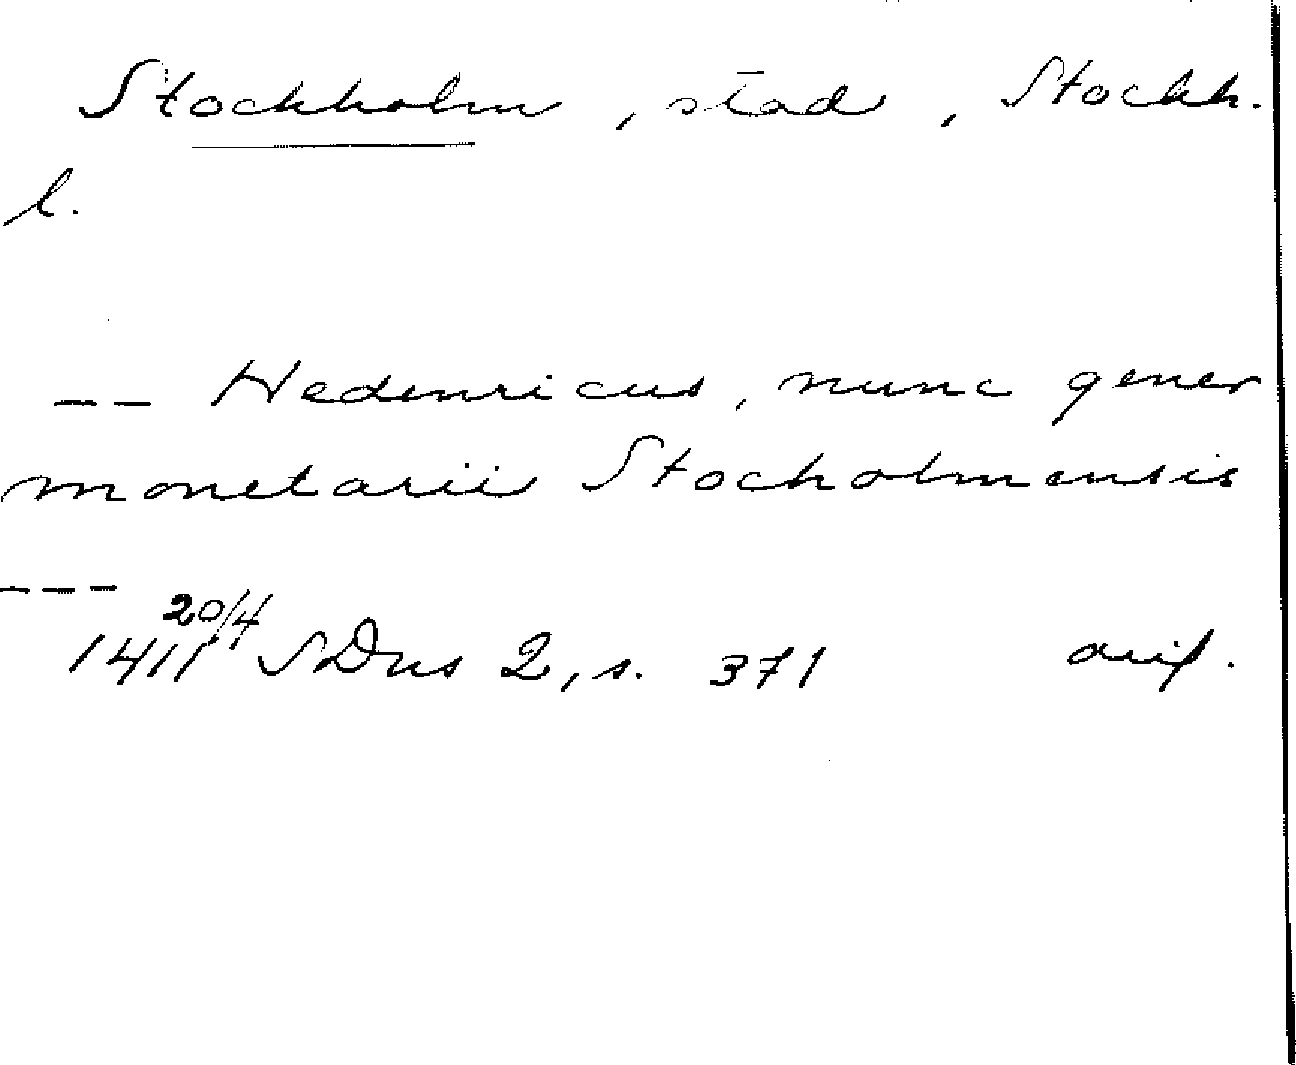 Stockholm, stad, Stockh.
l.
-- Hedenricus, nunc gener
monetarii Stocholmensis
---
1411 20/4 SDns 2, s. 371